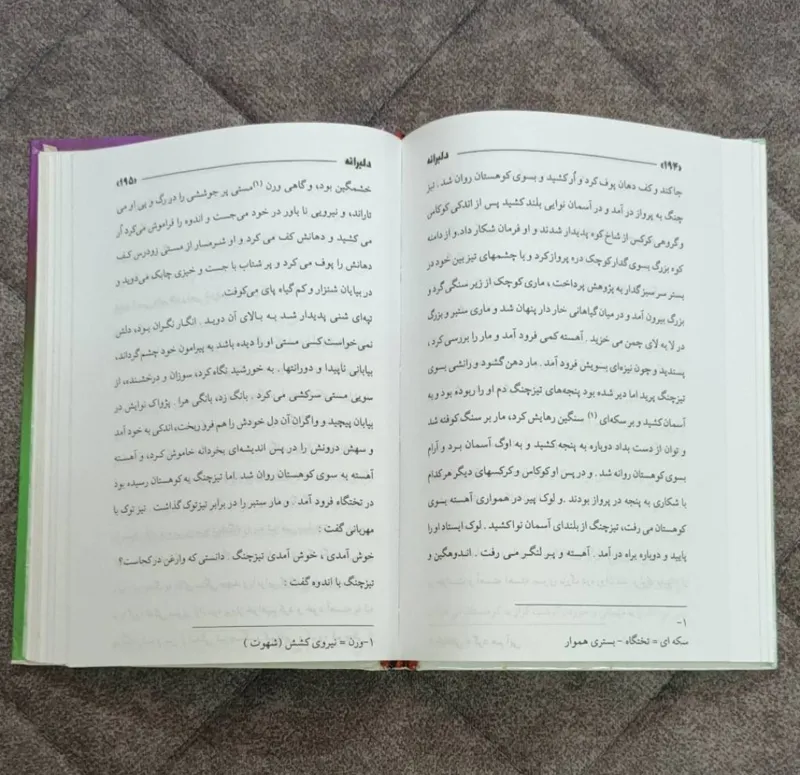 «۱۹۴» دلیرانه
جاکند و کف دهان پوف کرد و اُر کشید و بسوی کوهستان روان شد . تیز
چنگ به پرواز در آمد و در آسمان نوایی بلند کشید پس از اندکی کوکاس
و گروهی کرکس از شاخ کوه پدیدار شدند و او فرمان شکار داد. و از دامنه
کوه بزرگ بسوی گدار کوچک دره پرواز کرد و با چشمهای تیز بین خود در
بستر سر سبز گدار به پژوهش پرداخت ، ماری کوچک از زیر سنگی گرد و
بزرگ بیرون آمد و در میان گیاهانی خار دار پنهان شد و ماری ستبر و بزرگ
در لا به لای چمن می خزید . آهسته کمی فرود آمد و مار را بررسی کرد ،
پسندید و چون نیزه‌ای بسویش فرود آمد . مار دهن گشود و رانشی بسوی
تیزچنگ پرید اما دیر شده بود پنجه‌های تیزچنگ دم او را ربوده بود و به
آسمان کشید و بر سکه‌ای (۱) سنگین رهایش کرد، مار بر سنگ کوفته شد
و توان از دست بداد دوباره به پنجه کشید و به اوگ آسمان بـرد و آرام
بسوی کوهستان روانه شد . و در پس او کوکاس و کرکسهای دیگر هر کدام
با شکاری به پنجه در پرواز بودند . و لوک پیر در همواری آهسته بسوی
کوهستان می رفت، تیزچنگ از بلندای آسمان نوا کشید . لوک ایستاد او را
پایید و دوباره براه در آمد . آهسته و پـر لنگـر مـی رفت . اندوهگین و
۱-
سکه ای = تختگاه - بستری هموار
دلیرانه «۱۹۵»
خشمگین بود، و گاهی ورن (۱) مستی پر جوششی را در رگ و پی او می
تاراند، و نیرویی نا باور در خود می‌جست و اندوه را فراموش می‌کرد اُر
می کشید و دهانش کف می کرد و او شـرمسار از مسـتی زودرس کـف
دهانش را پوف می کرد و پر شتاب با جست و خیزی چابک می‌دوید و
در بیابان شنزار و کم گیاه پای می‌کوفت.
تپه‌ای شنی پدیدار شـد بـه بـالای آن دویـد . انگـار نگـران بـود، دلش
نمی‌خواست کسی مستی او را دیده باشد به پیرامون خود چشم گرداند،
بیابانی ناپیدا و دورانتها . به خورشید نگاه کرد، سوزان و درخشنده، از
سویی مستی سرکشی می کرد . بانگ زد، بانگی هرا . پژواک نوایش در
بیابان پیچید و واگران آن دل خودش را هم فرو ریخت، اندکی به خود آمد
و سهش درونش را در پس اندیشه‌ای بخردانه خاموش کرد، و آهسته
آهسته به سوی کوهستان روان شد. اما تیزچنگ به کوهستان رسیده بود
در تختگاه فرود آمد . و مار ستبر را در برابر تیزتوک گذاشت . تیز توک با
مهربانی گفت :
خوش آمدی ، خوش آمدی تیزچنگ . دانستی که وارغن در کجاست؟
تیزچنگ با اندوه گفت :
۱-ورن = نیروی کشش (شهوت )